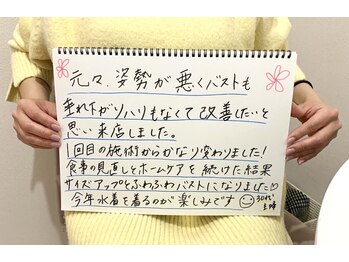 元々、姿勢が悪くバストも
垂れ下がりハリもなくて改善したいと
思い来店しました。
1回目の施術からかなり変わりました!
食事の見直しとホームケアを続けた結果
サイズアップとふわふわバストになりました♡
今年水着を着るのが楽しみです☺ 30代
主婦